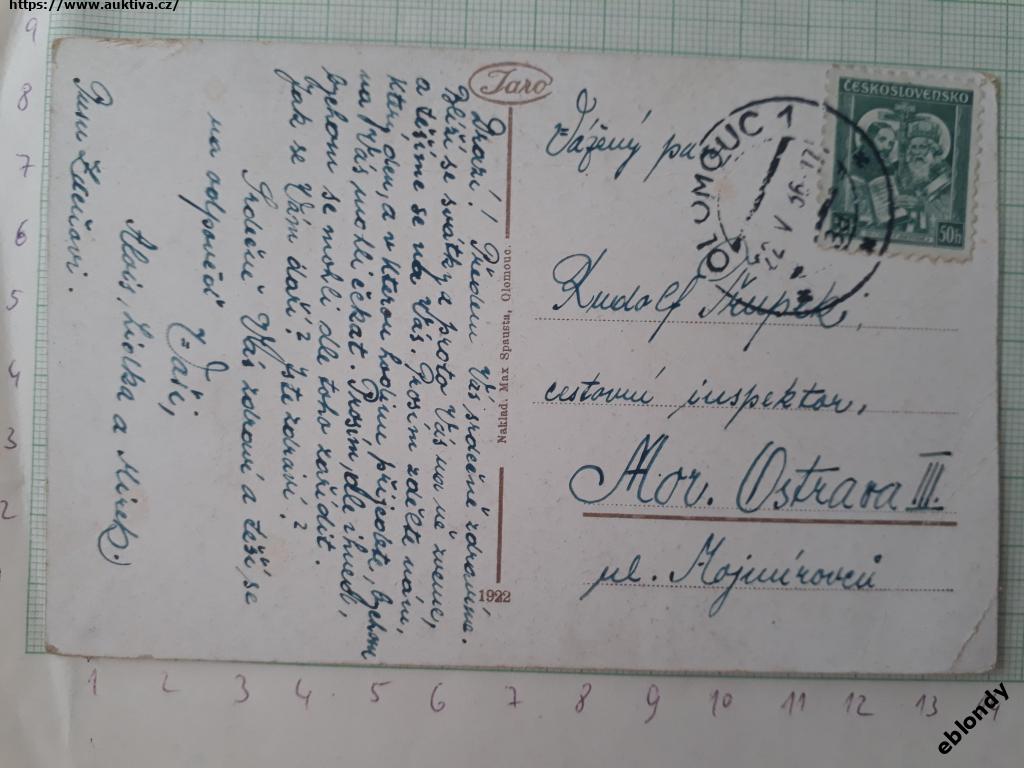 https://www.auktiva.cz/
Taro
Drazí!
Předem Vás srdečně zdravíme.
Blíží se svátky a proto Vás na ně zveme,
a těšíme se na Vás. Prosím sdělte nám,
který den, a v kterou hodinu přijedete, bychom
na Vás mohli čekat. Prosím, dle ihned,
bychom se mohli dle toho zařídit.
Jak se Vám daří? Jste zdraví?
Srdečně Vás zdraví a těší se
na odpověď
Vaši,
Alois, Liduška a Mirek.
Pusu Zdeňovi.
Naklad. Max Spausta, Olomouc.
1922
ČESKOSLOVENSKO
50h
OLOMOUC 1
Vážený pan
Rudolf
cestovní inspektor,
Mor. Ostrava III.
ul. Mojmírovců
9
8
7
6
5
4
3
2
1 2 3 4 5 6 7 8 9 10 11 12 13
eblondy